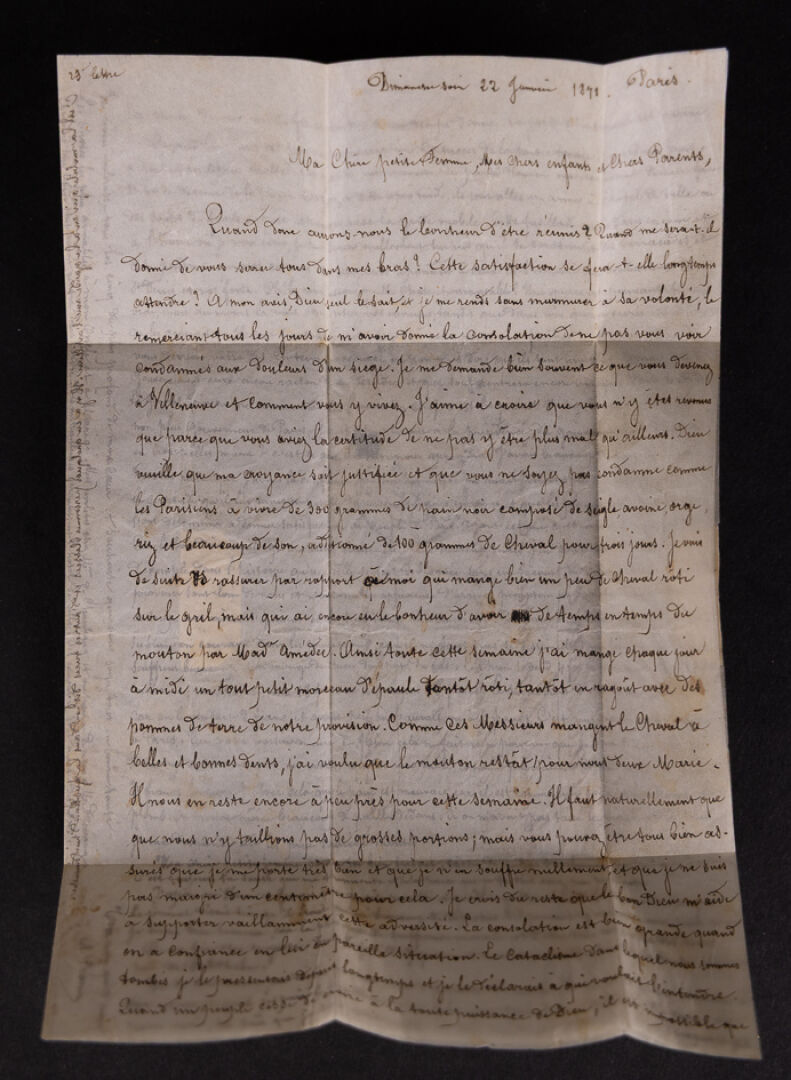 23e lettre
Dimanche soir 22 Janvier 1871. Paris.
Ma Chère petite Femme, Mes chers enfants et Chers Parents,
Quand donc aurons-nous le bonheur d'être réunis? Quand me serait-il
donné de vous serrer tous dans mes bras? Cette satisfaction se fera-t-elle longtemps
attendre? A mon avis, Dieu seul le sait, et je me rends sans murmurer à sa volonté, le
remerciant tous les jours de m'avoir donné la consolation de ne pas vous voir
condamnés aux douleurs d'un siège. Je me demande bien souvent ce que vous devenez
à Villeneuve et comment vous y vivez. J'aime à croire que vous n'y êtes revenus
que parce que vous aviez la certitude de ne pas y être plus mal qu'ailleurs. Dieu
veuille que ma croyance soit justifiée et que vous ne soyez pas condamné comme
les Parisiens à vivre de 300 grammes de pain noir composé de seigle avoine, orge,
riz et beaucoup de son, additionné de 100 grammes de Cheval pour trois jours. Je vais
de suite vs rassurer par rapport à moi qui mange bien un peu de Cheval rôti
sur le gril, mais qui ai encore eu le bonheur d'avoir de temps en temps du
mouton par Made Amédée. Ainsi toute cette semaine j'ai mangé chaque jour
à midi un tout petit morceau d'épaule tantôt rôti, tantôt en ragoût avec des
pommes de terre de notre provision. Comme ces Messieurs mangent le Cheval à
belles et bonnes dents, j'ai voulu que le mouton restât pour nous deux Marie.
Il nous en reste encore à peu près pour cette semaine. Il faut naturellement que
que nous n'y taillions pas de grosses portions; mais vous pouvez être tous bien as-
surés que je me porte très bien et que je n'en souffre nullement, et que je ne suis
pas maigri d'un centimètre pour cela. Je crois du reste que le bon Dieu m'aide
à supporter vaillamment cette adversité. La consolation est bien grande quand
on a confiance en lui en pareille situation. Le Cataclisme dans lequel nous sommes
tombés je le pressentais depuis longtemps et je le déclarais à qui voulait l'entendre.
Quand un peuple cesse de croire à la toute puissance de Dieu, il est impossible que